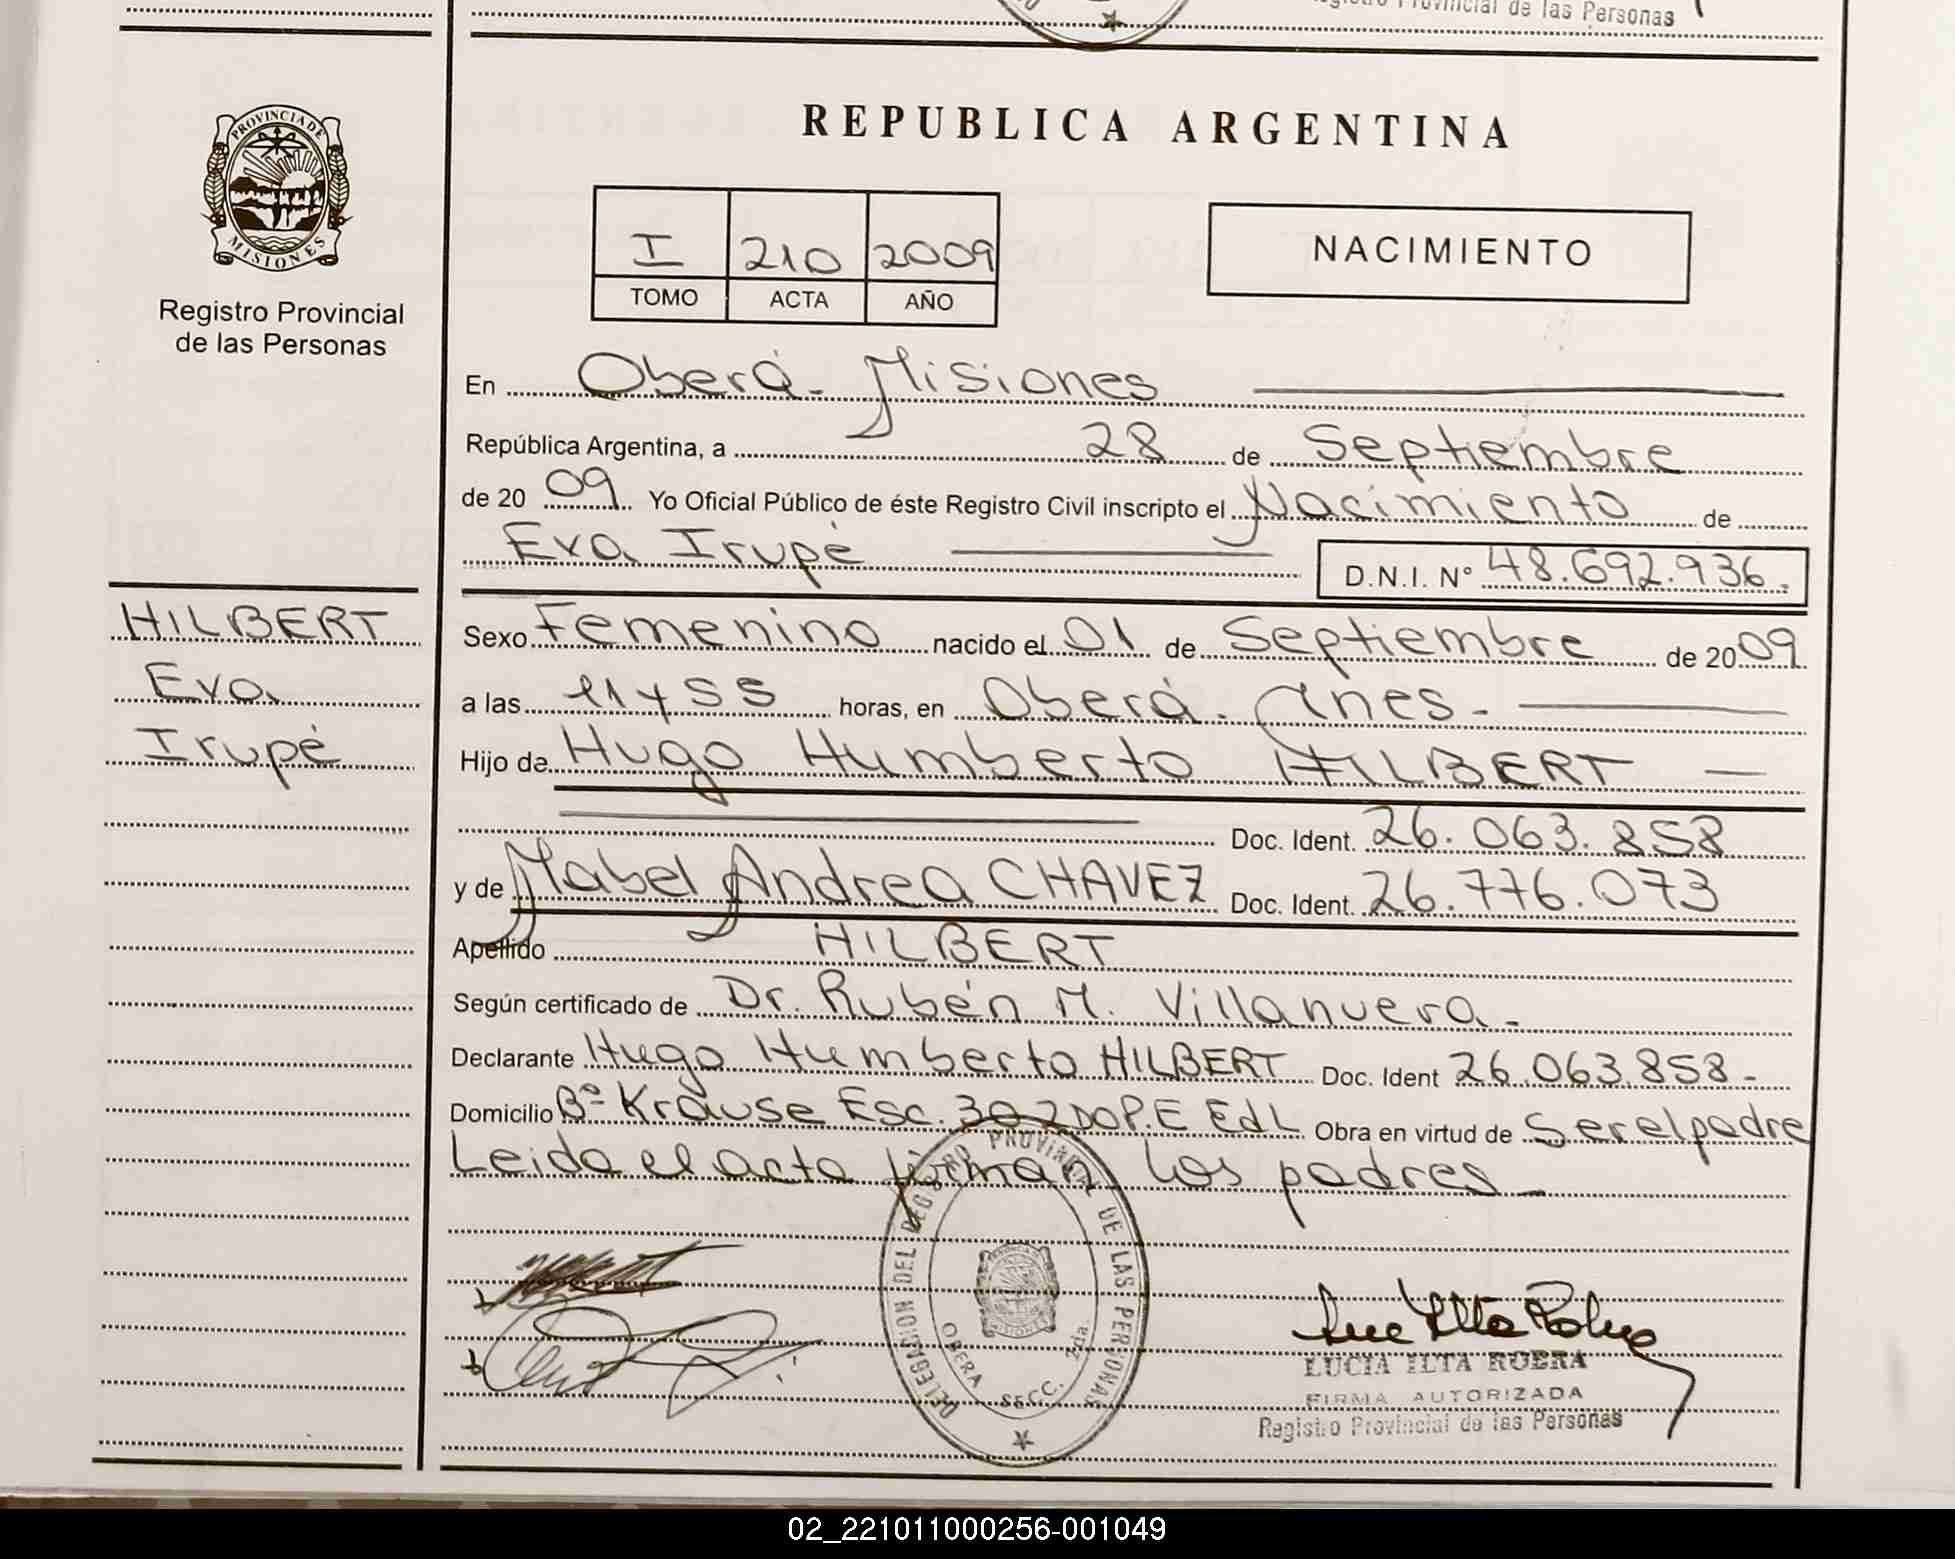 Registro Provincial de las Personas
PROVINCIA DE
MISIONES
Registro Provincial
de las Personas
REPUBLICA ARGENTINA
I 210 2009
TOMO ACTA AÑO
NACIMIENTO
En Oberá - Misiones
República Argentina, a 28 de Septiembre
de 2009. Yo Oficial Público de éste Registro Civil inscripto el Nacimiento de
Eva Irupé D.N.I. N° 48.692.936.
HILBERT
Eva
Irupé
Sexo Femenino nacido el 01 de Septiembre de 2009
a las 11 y 55 horas, en Oberá. Mnes -
Hijo de Hugo Humberto HILBERT —
Doc. Ident. 26.063.858
y de Mabel Andrea CHAVEZ Doc. Ident. 26.776.073
Apellido HILBERT
Según certificado de Dr. Rubén M. Villanueva -
Declarante Hugo Humberto HILBERT Doc. Ident 26.063.858 -
Domicilio B° Krause Esc. 302 DOP.E Edl Obra en virtud de Ser el padre
Leida el acta firman los padres -
DELEGACION DEL REGISTRO PROVINCIAL DE LAS PERSONAS
PROVINCIA DE
MISIONES
OBERA SECC. 2da.
LUCIA ILTA ROBRA
FIRMA AUTORIZADA
Registro Provincial de las Personas
02_221011000256-001049